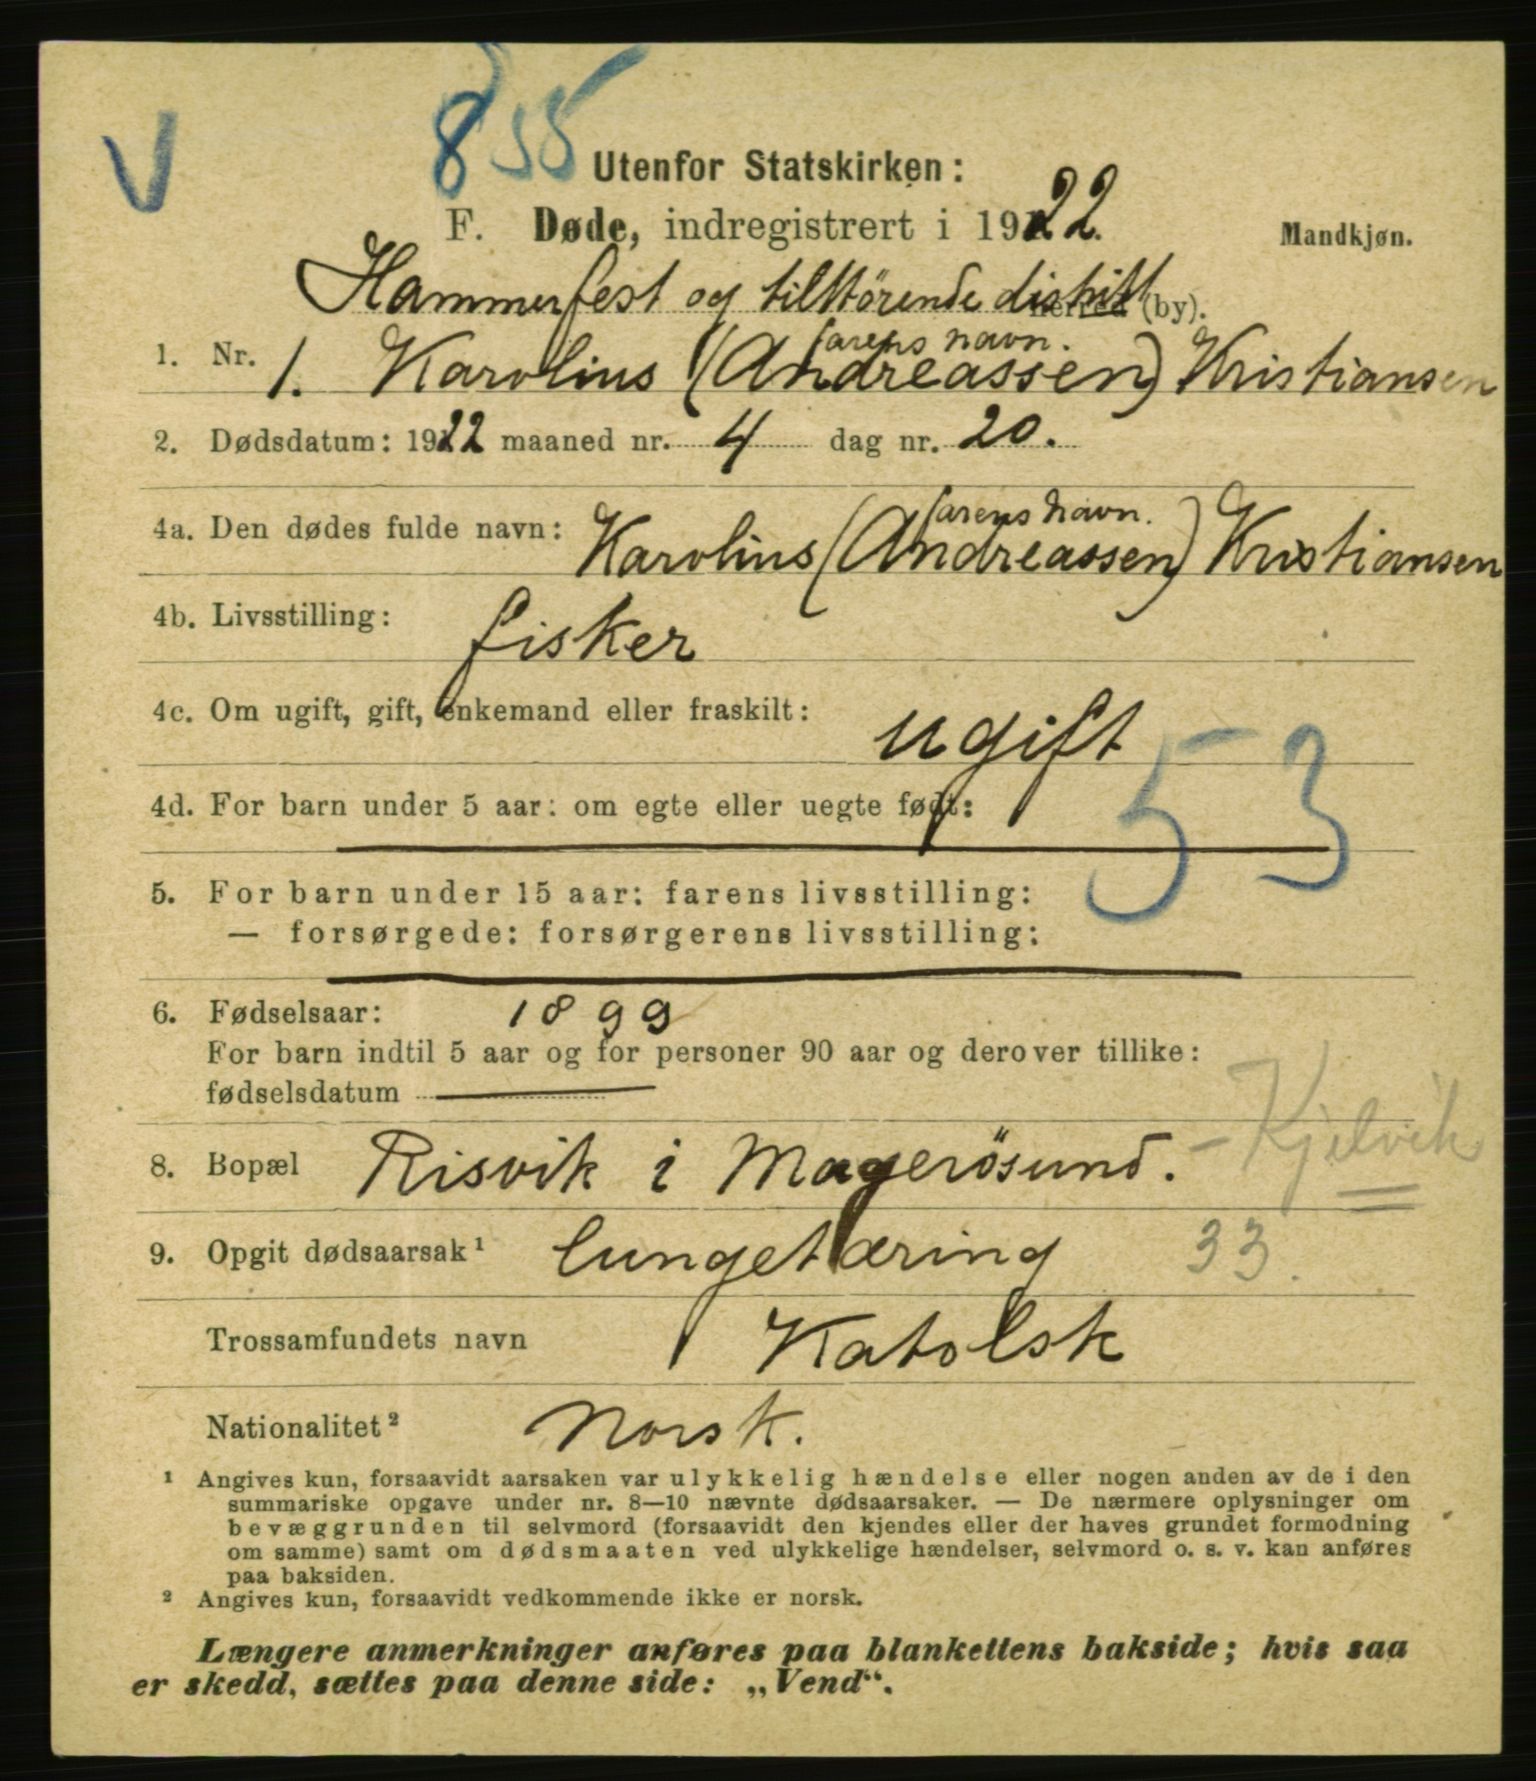 V
855
Utenfor Statskirken:
F. Døde, indregistrert i 1922.
Mandkjøn.
Hammerfest og tilstörende distrikt herred (by).
farens navn.
1. Nr. 1. Karolius (Andreassen) Kristiansen
2. Dødsdatum: 1922 maaned nr. 4 dag nr. 20.
farens navn.
4a. Den dødes fulde navn: Karolius (Andreassen) Kristiansen
4b. Livsstilling: fisker
4c. Om ugift, gift, enkemand eller fraskilt: ugift
53
4d. For barn under 5 aar: om egte eller uegte født:
5. For barn under 15 aar: farens livsstilling:
— forsørgede: forsørgerens livsstilling:
6. Fødselsaar: 1899
For barn indtil 5 aar og for personer 90 aar og derover tillike:
fødselsdatum
8. Bopæl Risvik i Magerösund. - Kjelvik
9. Opgit dødsaarsak¹ lungetæring 33.
Trossamfundets navn Katolsk
Nationalitet² Norsk.
¹ Angives kun, forsaavidt aarsaken var ulykkelig hændelse eller nogen anden av de i den
summariske opgave under nr. 8—10 nævnte dødsaarsaker. — De nærmere oplysninger om
bevæggrunden til selvmord (forsaavidt den kjendes eller der haves grundet formodning
om samme) samt om dødsmaaten ved ulykkelige hændelser, selvmord o. s. v. kan anføres
paa baksiden.
² Angives kun, forsaavidt vedkommende ikke er norsk.
Længere anmerkninger anføres paa blankettens bakside; hvis saa
er skedd, sættes paa denne side: „Vend“.